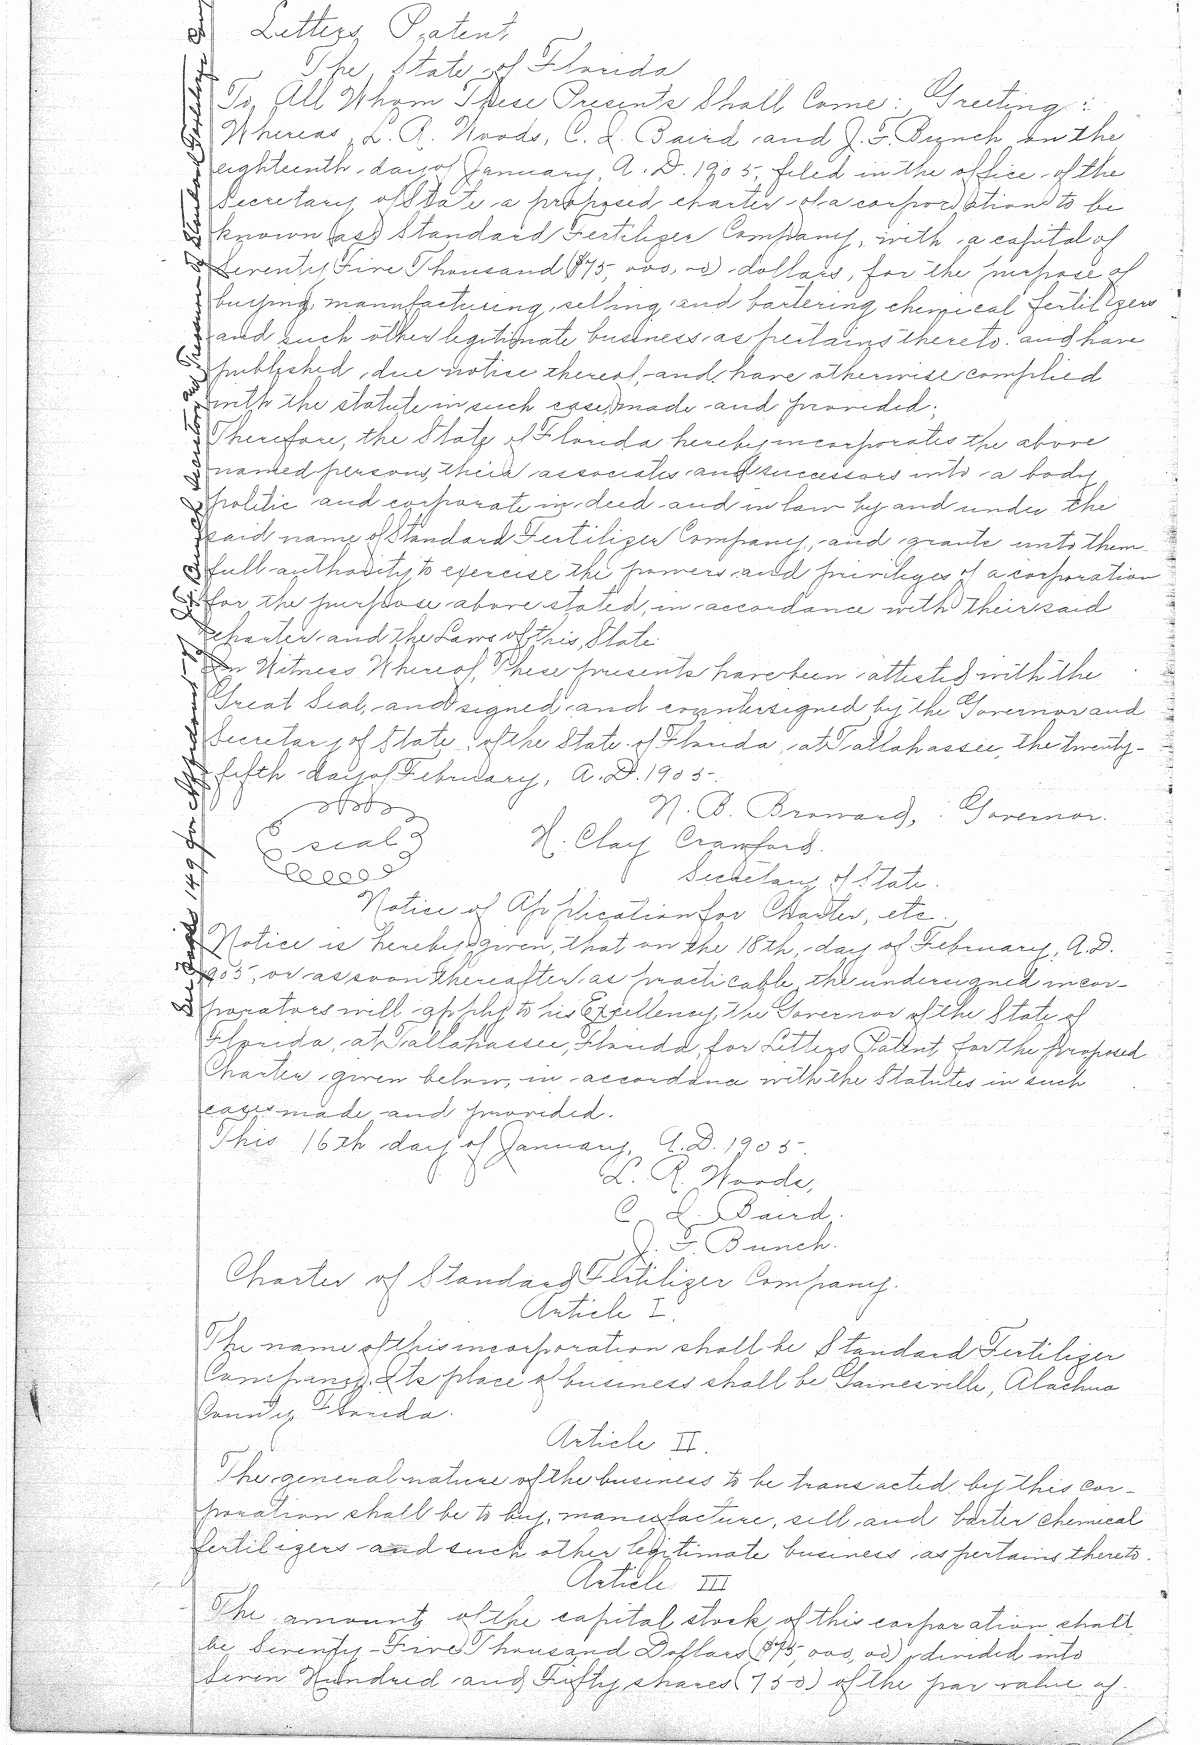 Letters Patent
The State of Florida
To All Whom These Presents Shall Come: Greeting:
Whereas, L. R. Woods, C. I. Baird and J. F. Bunch on the
eighteenth day of January, A. D. 1905, filed in the office of the
Secretary of State a proposed charter of a corporation to be
known as Standard Fertilizer Company, with a capital of
Seventy Five Thousand ($75,000,00) dollars, for the purpose of
buying, manufacturing, selling, and bartering chemical fertilizers
and such other legitimate business as pertains thereto. and have
published due notice thereof, and have otherwise complied
with the statute in such case made and provided;
Therefore, the State of Florida hereby incorporates the above
named persons, their associates and successors into a body
politic and corporate in deed and in law by and under the
said name of Standard Fertilizer Company, and grants unto them
full authority to exercise the powers and privileges of a corporation
for the purpose above stated, in accordance with their said
charter and the Laws of this State.
In Witness Whereof, These presents have been attested with the
Great Seal, and signed and countersigned by the Governor and
Secretary of State of the State of Florida, at Tallahassee, the twenty-
fifth day of February, A.D. 1905.
N. B. Broward, Governor.
seal
H. Clay Crawford.
Secretary of State.
Notice of Application for Charter, etc.
Notice is hereby given, that on the 18th, day of February, A.D.
1905, or as soon thereafter as practicable, the undersigned incor-
porators will apply to his Excellency, the Governor of the State of
Florida, at Tallahassee, Florida, for Letters Patent for the proposed
Charter given below, in accordance with the Statutes in such
cases made and provided.
This 16th day of January, A.D. 1905.
L. R. Woods,
C I. Baird.
J. F. Bunch.
Charter of Standard Fertilizer Company.
Article I.
The name of this incorporation shall be Standard Fertilizer
Company. Its place of business shall be Gainesville, Alachua
County, Florida.
Article II.
The general nature of the business to be transacted by this cor-
poration shall be to buy, manufacture, sell and barter chemical
fertilizers and such other legitimate business as pertains thereto.
Article III
The amount of the capital stock of this corporation shall
be Seventy-Five Thousand Dollars ($75,000,00), divided into
Seven Hundred and Fifty shares (750) of the par value of
See Page 149 for Appointment of J. F. Bunch Secretary and Treasurer of Standard Fertilizer Comp